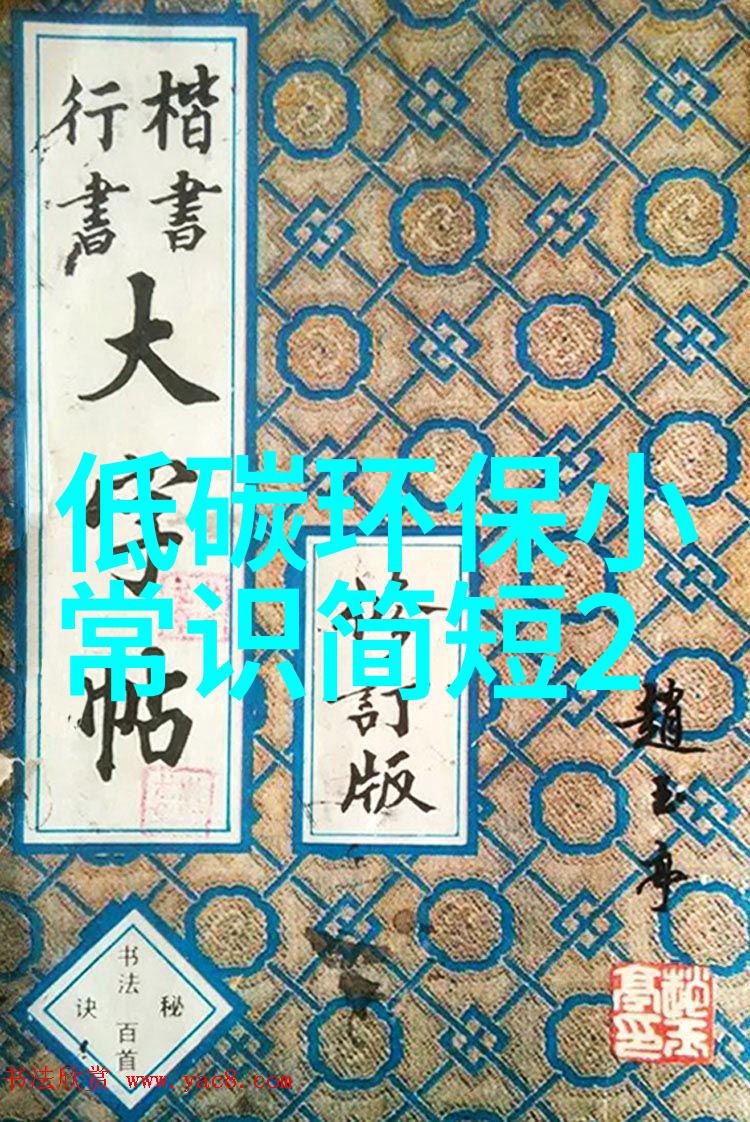 楷書
行書
大字帖
低碳环保小
常识简短2
訂版
趙玉亭
书法
秘诀
百首
书法欣赏 www.yac8.com